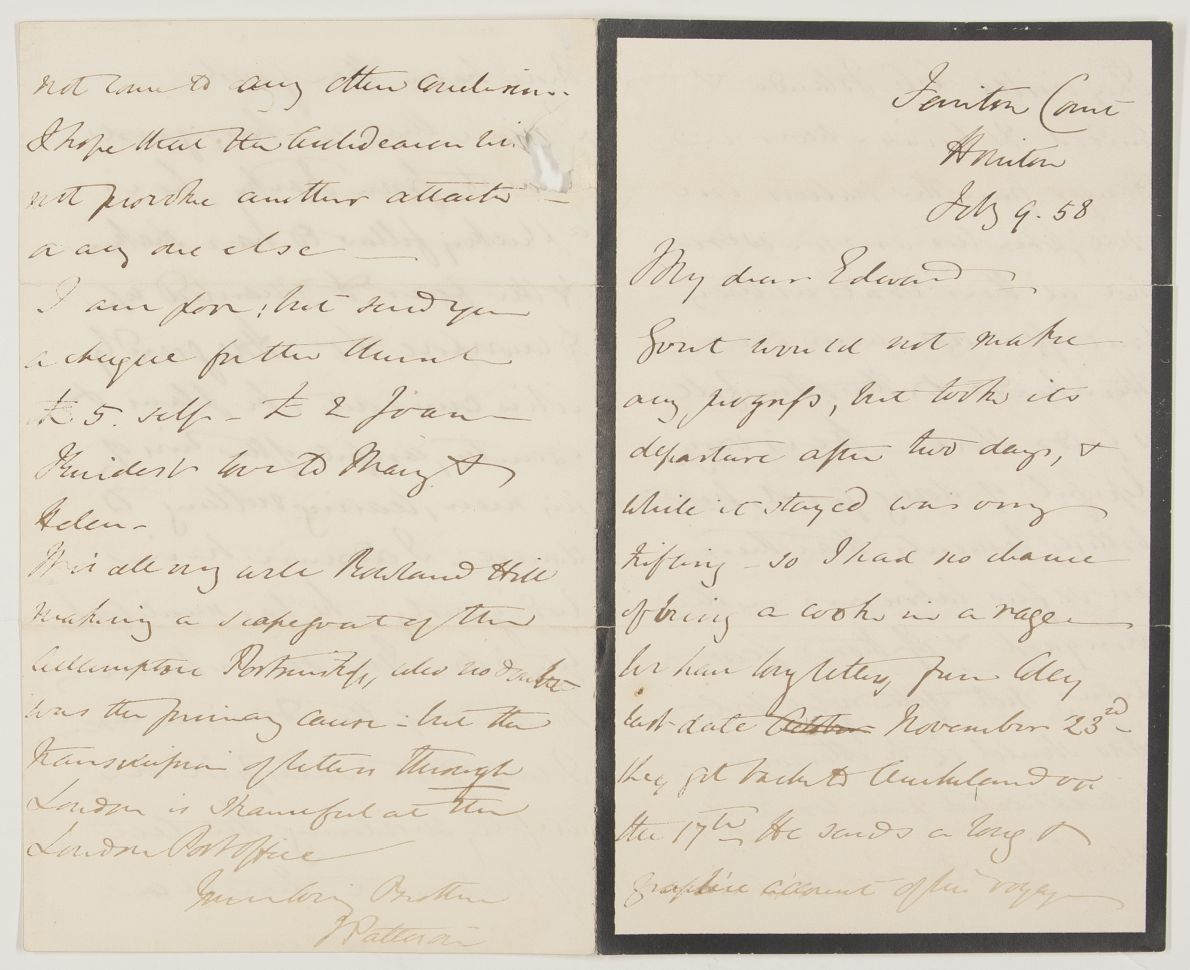 Feniton Court
Honiton
Feby 9. 58
My dear Edward
Gout would not make
any progress, but took its
departure after two days, &
while it stayed was very
trifling - so I had no chance
of being a cook in a rage -
We have long letters, from Coley
last date October November 23rd
they got back to Auckland on
the 17th He sends a long &
graphic account of his voyage
not come to any other conclusion.
I hope that the Archdeacon
not provoke another attack -
on any one else -
I am poor, but send you
a cheque for the
£5. self - £2 Joan -
Kindest love to Mary &
Helen -
It is all very well Rowland Hill
making a scapegoat of the
Postmistress, who no doubt
was the primary cause - but the
transmission of letters through
London is shameful at the
London Post Office
Your loving Brother
J Patteson